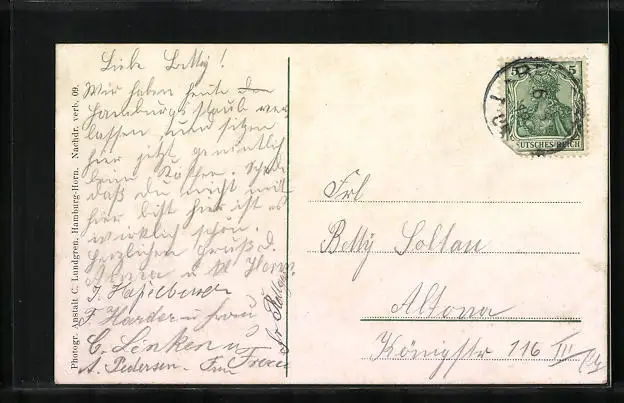 Liebe Betty!
Wir haben heute den
Hamburger Staub ver
lassen und sitzen
hier jetzt gemütlich
beim Kaffee. Schade
daß du nicht mit
hier bist hier ist es
wirklich schön.
Herzlichen Gruß d.
u
J. Haselbusch
F. Harder u Frau
C. Lenken u
A. Pedersen. Frau
Photogr. Anstalt C. Lundgren, Hamburg-Horn. Nachdr. verb. 09.
5 5
DEUTSCHES REICH
Frl
Betty Soltau
Altona
Königstr 116 III